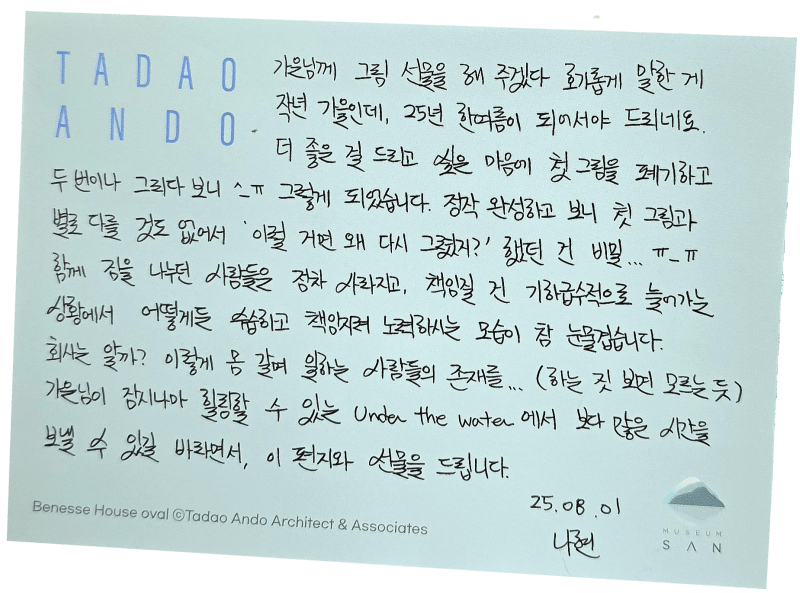 TADAO
ANDO
가을님께 그림 선물을 해 주겠다 호기롭게 말한 게
작년 가을인데, 25년 한여름이 되어서야 드리네요.
더 좋은 걸 드리고 싶은 마음에 첫 그림을 폐기하고
두 번이나 그리다 보니 ^_ㅠ 그렇게 되었습니다. 정작 완성하고 보니 첫 그림과
별로 다를 것도 없어서 '이럴 거면 왜 다시 그렸지?' 했던 건 비밀... ㅠ_ㅠ
함께 짐을 나누던 사람들은 점차 사라지고, 책임질 건 기하급수적으로 늘어가는
상황에서 어떻게든 수습하고 책임지려 노력하시는 모습이 참 눈물겹습니다.
회사는 알까? 이렇게 몸 갈며 일하는 사람들의 존재를... (하는 짓 보면 모르는 듯)
가을님이 잠시나마 힐링할 수 있는 Under the water에서 보다 많은 시간을
보낼 수 있길 바라면서, 이 편지와 선물을 드립니다.
25.08.01
Benesse House oval ©Tadao Ando Architect & Associates
MUSEUM
SAN